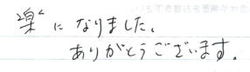 楽になりました。
ありがとうございます。